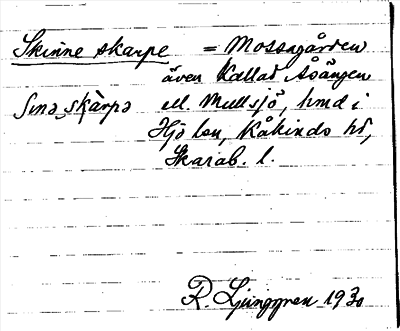 Skinne skarpe = Mossagården
även kallad Åsängen
ʃinə_skàrpə ell. Mullsjö, hmd i
Hjo lsn, Kåkinds hd,
Skarab. l.
R. Ljunggren 1930